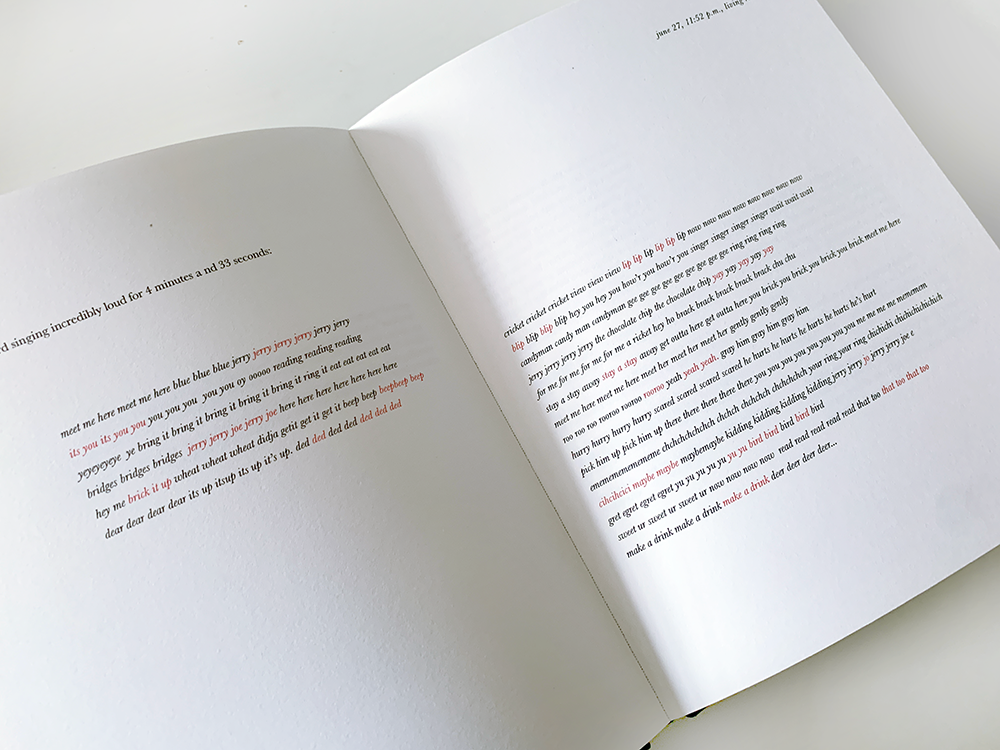 singing incredibly loud for 4 minutes a nd 33 seconds:
meet me here meet me here blue blue blue jerry jerry jerry jerry jerry jerry
its you its you you you you you  you you oy ooooo reading reading reading
yeyeyeyeye  ye bring it bring it bring it bring it bring it ring it eat eat eat eat eat
bridges bridges bridges  jerry jerry joe jerry joe here here here here here here
hey me brick it up wheat wheat wheat didja getit get it get it beep beep beepbeep beep
dear dear dear dear its up itsup its up it's up. ded ded ded ded ded ded ded
june 27, 11:52 p.m., living
cricket cricket cricket view view view lip lip lip lip lip lip now now now now now now now now
blip blip blip blip hey you hey you how'r you how'r you singer singer singer singer wait wait wait
candyman candy man candyman gee gee gee gee gee gee gee gee ring ring ring ring
jerry jerry jerry jerry the chocolate chip the chocolate chip yay yay yay yay yay
for me for me for me for me a ricket hey ho brack brack brack brack brack brack chu chu
stay a stay away stay a stay away get outta here get outta here you brick you brick you brick you brick meet me here
meet me here meet me here meet me here meet her meet her gently gently gently
roo roo roo rooroo rooroo rooroo yeah yeah yeah. gray him gray him gray him
hurry hurry hurry scared scared scared scared he hurts he hurts he hurts he's hurt
pick him up pick him up there there there there you you you you you you you me me me me mememem
emememememememe chchchchchchch chchchch chchchchch your ring your ring chichichi chichichichichich
cihcihcici maybe maybe maybemaybe kidding kidding kidding kidding jerry jerry jo jerry jerry joe e
gret egret egret egret yu yu yu yu yu yu yu bird bird bird bird bird
sweet ur sweet ur sweet ur now now now now now  read read read read read that too that too that too
make a drink make a drink make a drink deer deer deer deer...